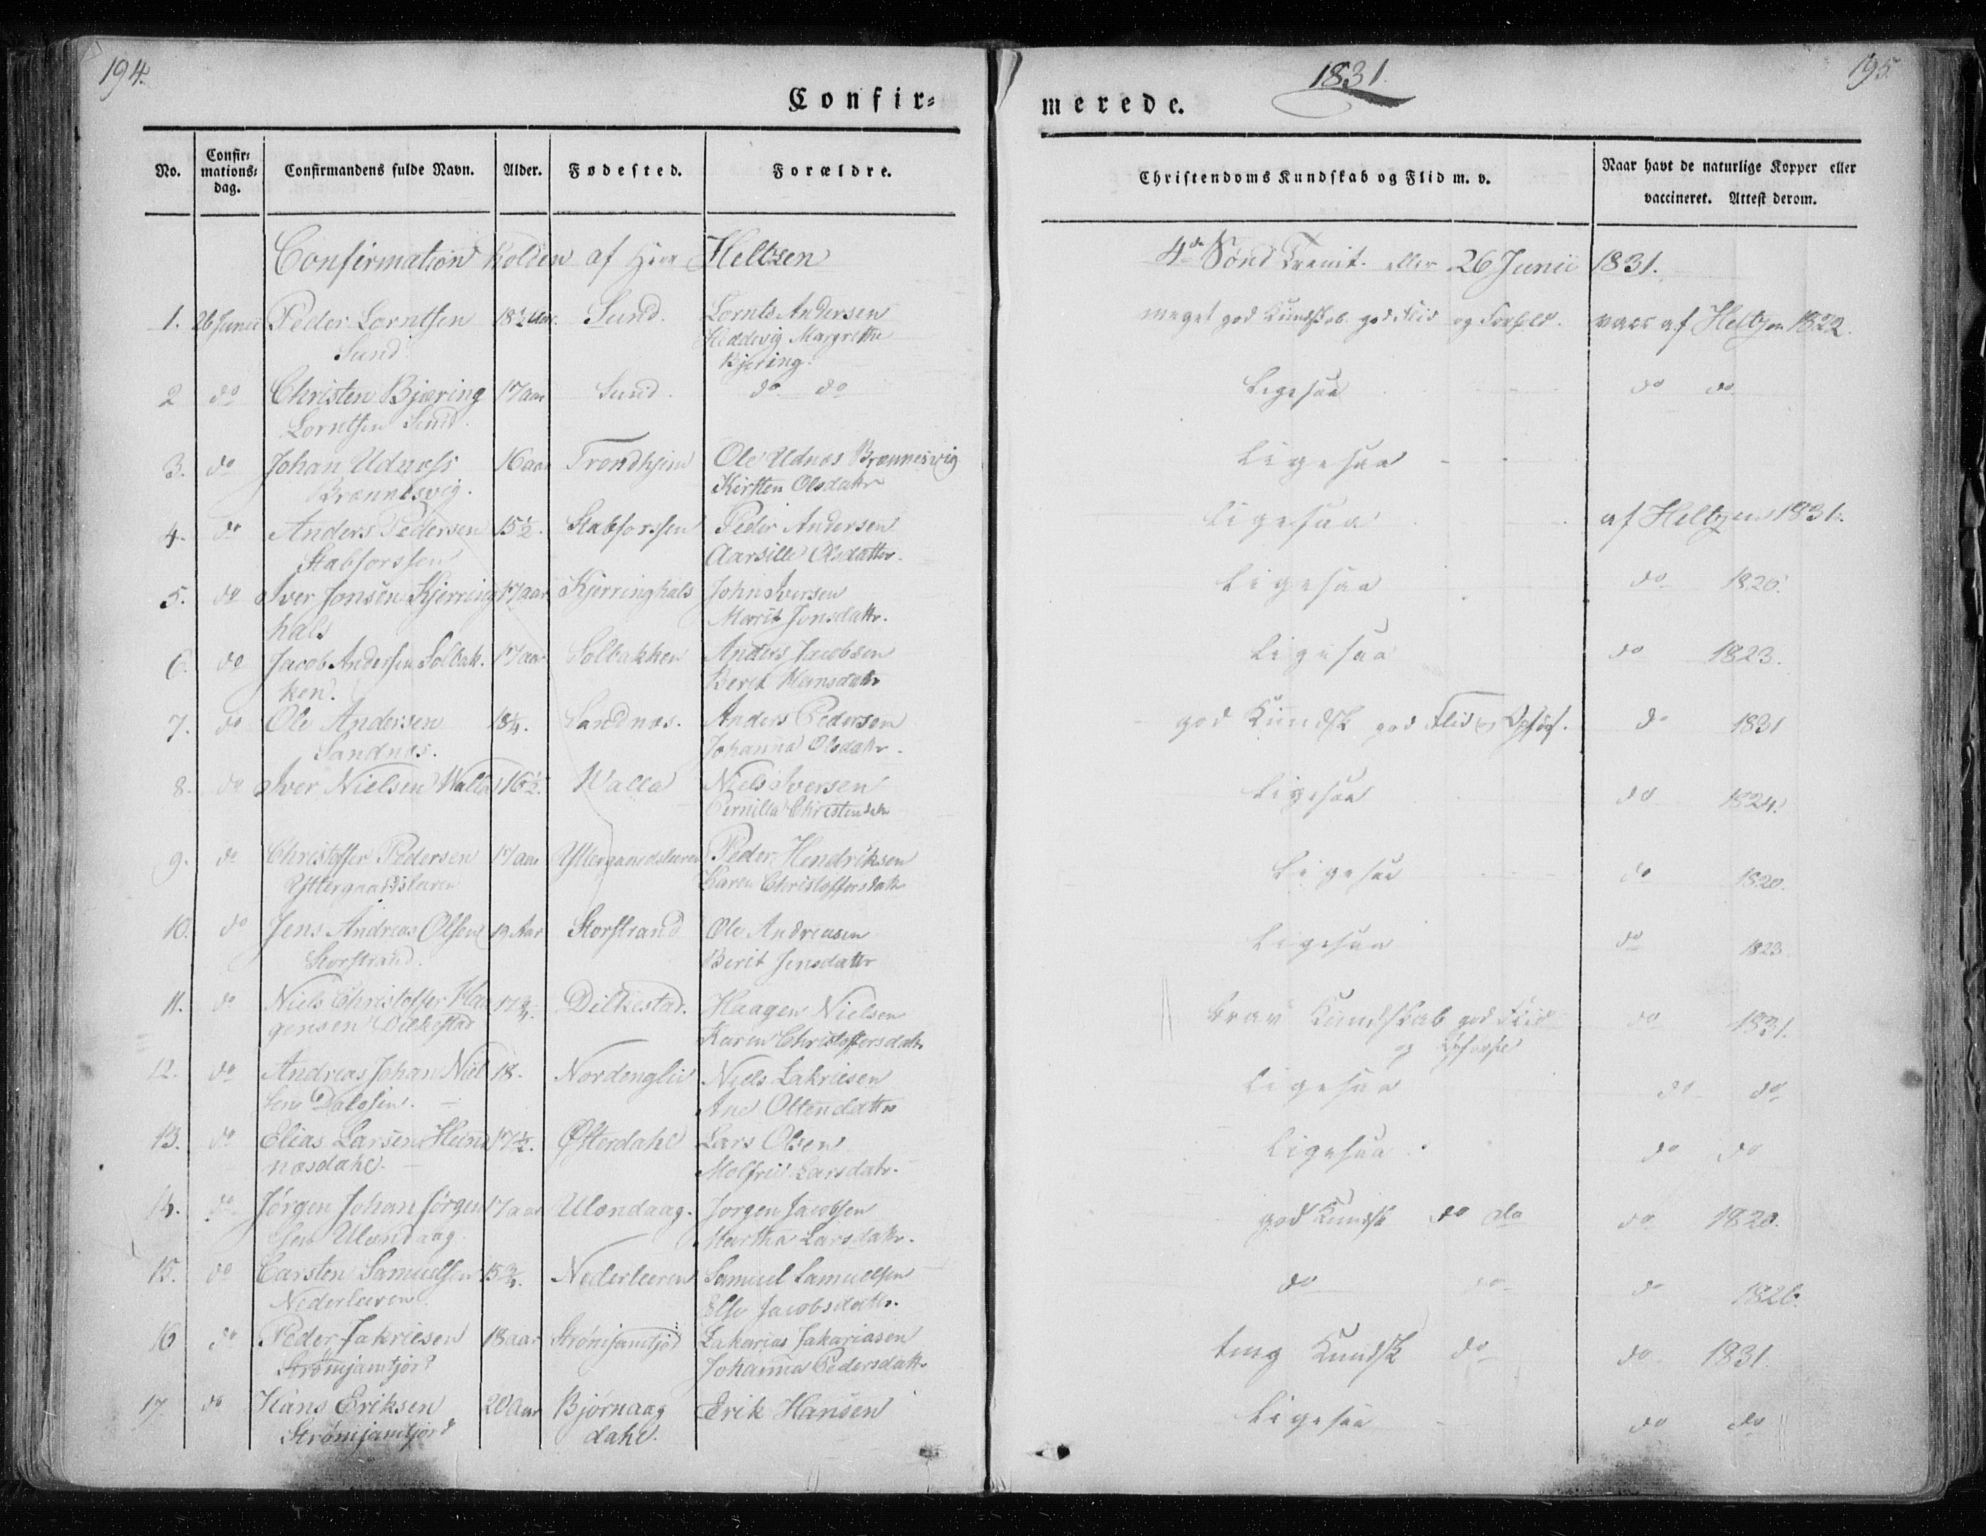 194.
Confir-
merede.
1831.
195.
No.
Confir-
mations-
dag.
Confirmandens fulde Navn.
Alder.
Fødested.
Forældre.
Christendoms Kundskab og Flid m. v.
Naar havt de naturlige Kopper eller
vaccineret. Attest derom.
Confirmation holden af Herr Heltzen
4de Sønd Trenit. eller 26 Junii 1831.
1. 26 Junii Peder Lorntsen 18½ Aar. Sund. Lornts Andersen meget god Kundskab god Flid og Forhold. vacc af Heltzen 1822.
Sund Heddevig Margrethe
Bjering.
2 do Christen Bjæring 17 aar Sund. do do Ligesaa do do
Lorntsen Sund.
3. do Johan Udnæss 16 aar Trondhjem Ole Udnæs Brønnesvig Ligesaa
Brønnesvig. Kirsten Olsdattr
4. do Anders Pedersen 15½. Stabforssen Peder Andersen Ligesaa af Heltzen 1831.
Stabforssen Aarsille Olsdatter.
5. do Iver Jonsen Kjerring 17 aar Kjerringhals John Iversen Ligesaa do 1826.
hals Marit Jonsdattr.
6. do Jacob Andersen Solbak- 17 aar Solbakken Anders Jacobsen Ligesaa do 1823.
ken. Berit Hansdattr
7. do Ole Andersen 18¼. Sandnæs. Anders Pedersen god Kundsk god Flid og Opførs. do 1831
Sandnæs. Johanna Olsdattr.
8. do Iver Nielsen Walla 16½. Walla Niels Iversen Ligesaa do 1824.
Pernilla Christensdattr
9. do Christoffer Pedersen 17 aar Yttergaardsleeren Peder Hendriksen Ligesaa do 1820.
Yttergaardsleeren Karen Christoffersdattr
10. do Jens Andreas Olsen 19 Aar Storstrand Ole Andreasen Ligesaa do 1823
Storstrand. Berit Jensdattr
11. do Niels Christoffer Haa 17¾. Dilkestad. Haagen Nielsen brav Kundskab god Flid do 1831.
gensen Dilkestad Karen Christoffersdattr og Opførsel
12. do Andreas Johan Niel 18. Nordenglie Niels Zakriesen Ligesaa do do
sen Dalosen. Ane Ottendattr
13. do Elias Larsen Hem 17½. Østendahl Lars Olsen Ligesaa do do
næsdahl. Molfrid Larsdatr.
14. do Jørgen Johan Jørgen 17 aar Ulvendaag. Jørgen Jacobsen god Kundsk do do do 1820.
sen Ulvendaag. Martha Larsdatr.
15. do Carsten Samuelsen 15¾. Nederleeren Samuel Samuelsen do do do 1826.
Nederleeren. Else Jacobsdattr.
16 do Peder Zakriesen 18 aar Strømjamtjord Zakarias Zakariasen ting Kundsk do do 1831.
Strømjamtjord Johanna Pedersdattr
17 do Hans Eriksen 20 Aar Bjørnaag Erik Hansen Ligesaa do do
Strømjamtjord dahl.